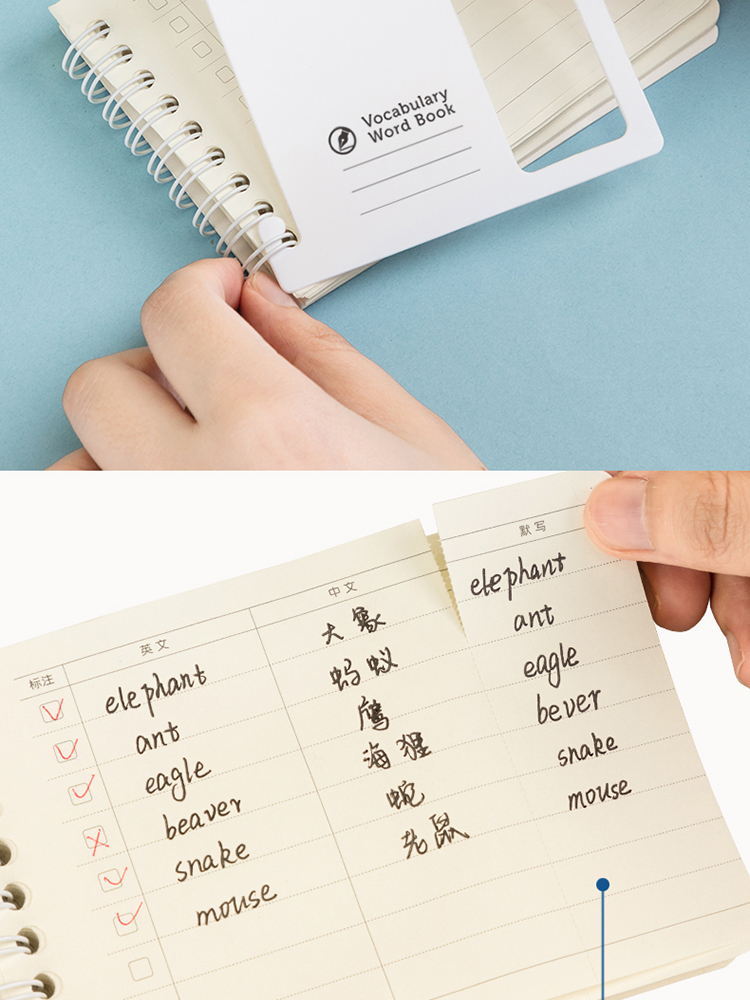 Vocabulary
Word Book
标注 英文 中文 默写
elephant 大象 elephant
ant 蚂蚁 ant
eagle 鹰 eagle
beaver 海狸 bever
snake 蛇 snake
mouse 老鼠 mouse